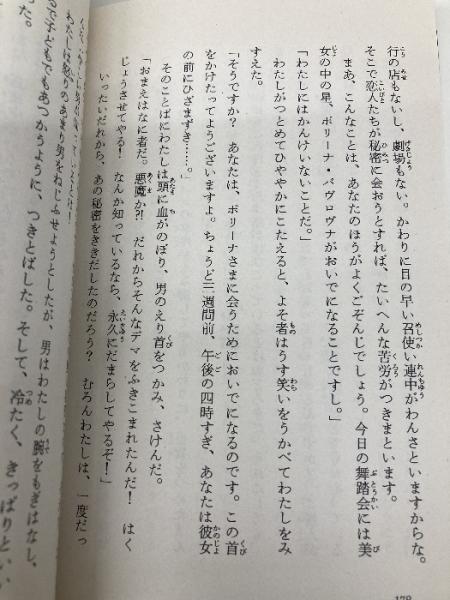 行の店もないし、劇場もない。かわりに目の早い召使い連中がわんさといますからな。
そこで恋人たちが秘密に会おうとすれば、たいへんな苦労がつきまといます。
まあ、こんなことは、あなたのほうがよくごぞんじでしょう。今日の舞踏会には美
女の中の星、ポリーナ・パヴロヴナがおいでになることですし。」
「わたしにはかんけいないことだ。」
わたしがつとめてひややかにこたえると、よそ者はうす笑いをうかべてわたしをみ
すえた。
「そうですか？　あなたは、ポリーナさまに会うためにおいでになるのです。この首
をかけたってようございますよ。ちょうど三週間前、午後の四時すぎ、あなたは彼女
の前にひざまずき……。」
そのことばにわたしは頭に血がのぼり、男のえり首をつかみ、さけんだ。
「おまえはなに者だ。悪魔か？！　だれからそんなデマをふきこまれたんだ！　はく
じょうさせてやる！　なんか知っているなら、永久にだまらしてやるぞ！」
いったいだれから、あの秘密をききだしたのだろう？　むろんわたしは、一度だっ
わたしは怒りのあまり男をねじふせようとしたが、男はわたしの腕をもぎはなし、
で子どもでもあつかうように、つきとばした。そして、冷たく、きっぱりといい
た。
178